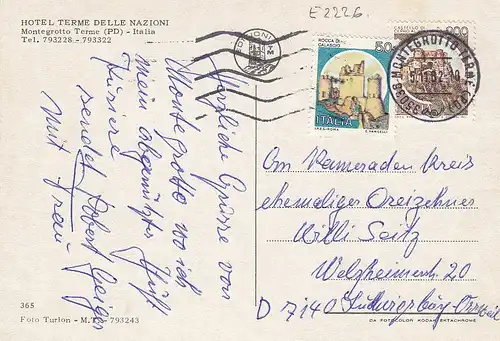 HOTEL TERME DELLE NAZIONI
Montegrotto Terme (PD) - Italia
Tel. 793228 - 793322
E2226.
ROCCA DI
CALASCIO
50
ITALIA
I.P.Z.S.-ROMA
CASTELLO DI
MONTEGROTTO TERME
35036
Herzliche Grüsse von
Montegrotto wo ich
mein abgenütztes Hüft
kuriere
sendet Robert Geiger
mit Frau
Om Kameraden Kreis
ehemaliger Dreizehner
Willi Seitz
Welzheimerstr. 20
D 7140 Ludwigsburg-Ossweil
365
Foto Turlon - M.T. - 793243
DA FOTOCOLOR KODAK EKTACHROME